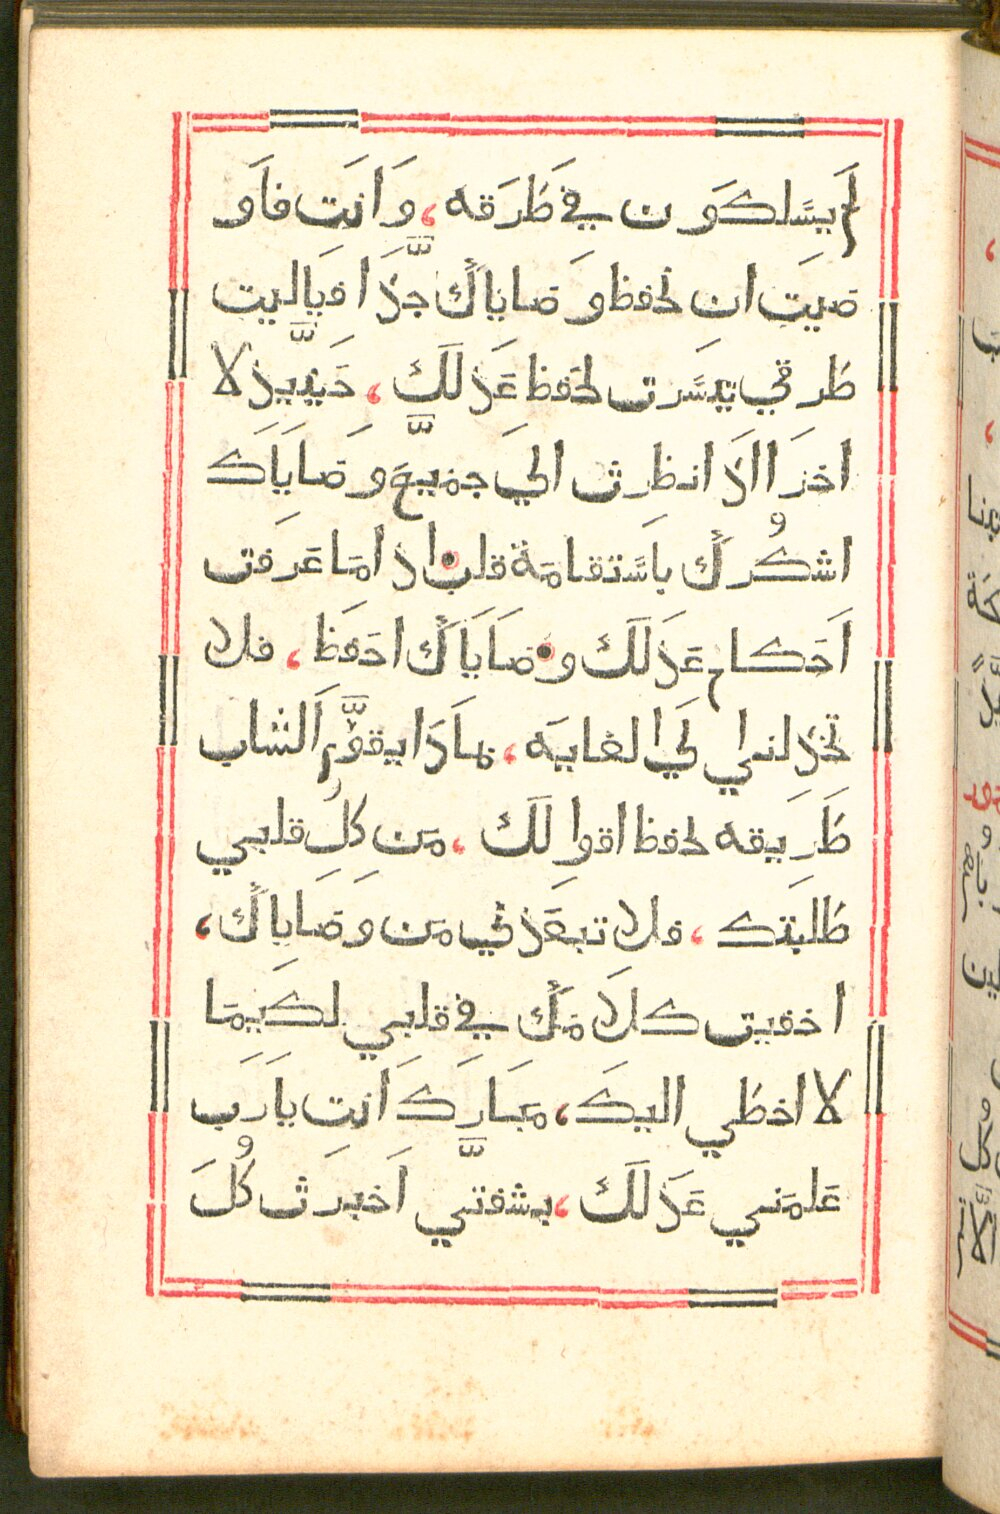 لَم يسَلكَون في طَرَقه، وَانَت فاَو
صَيَت ان تحفظ وَصاياكَ جدّاَ فياليت
طرقي تيسَرت لحَفظ عَدلَك، حَينيّيذ لا
اخزَا الاَذ انظرت الي جمَيعَ وصَايَاك
اشكُرك باَسَتقامَة قلب اذ امَا عَرفَت
اَحَكام عَدَلَك وصَايَاك احَفَظ، فلا
تخَذلنَي لَي الغايَه، بماَدَا يقوّم اَلشاب
طَريَقه لحفظ اقوالَك، مَن كلِ قلبي
طَلبتَك، فلا تبعَدني مَن وَصَاياكَ،
اخفيت كلاَمَك في قلبي لكَيمَا
لا اخطَي اليكَ، مَبَارَك اَنت ياَرَب
عَلمَني عَدَلَك، بشفتَي اَخبَرت كُلَ